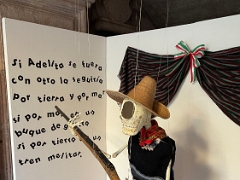 si Adelita se fuera
con otro la seguiria
Por tierra y por ma
si por mar en us
buque de guerra
si por tierra en us
tren militar.